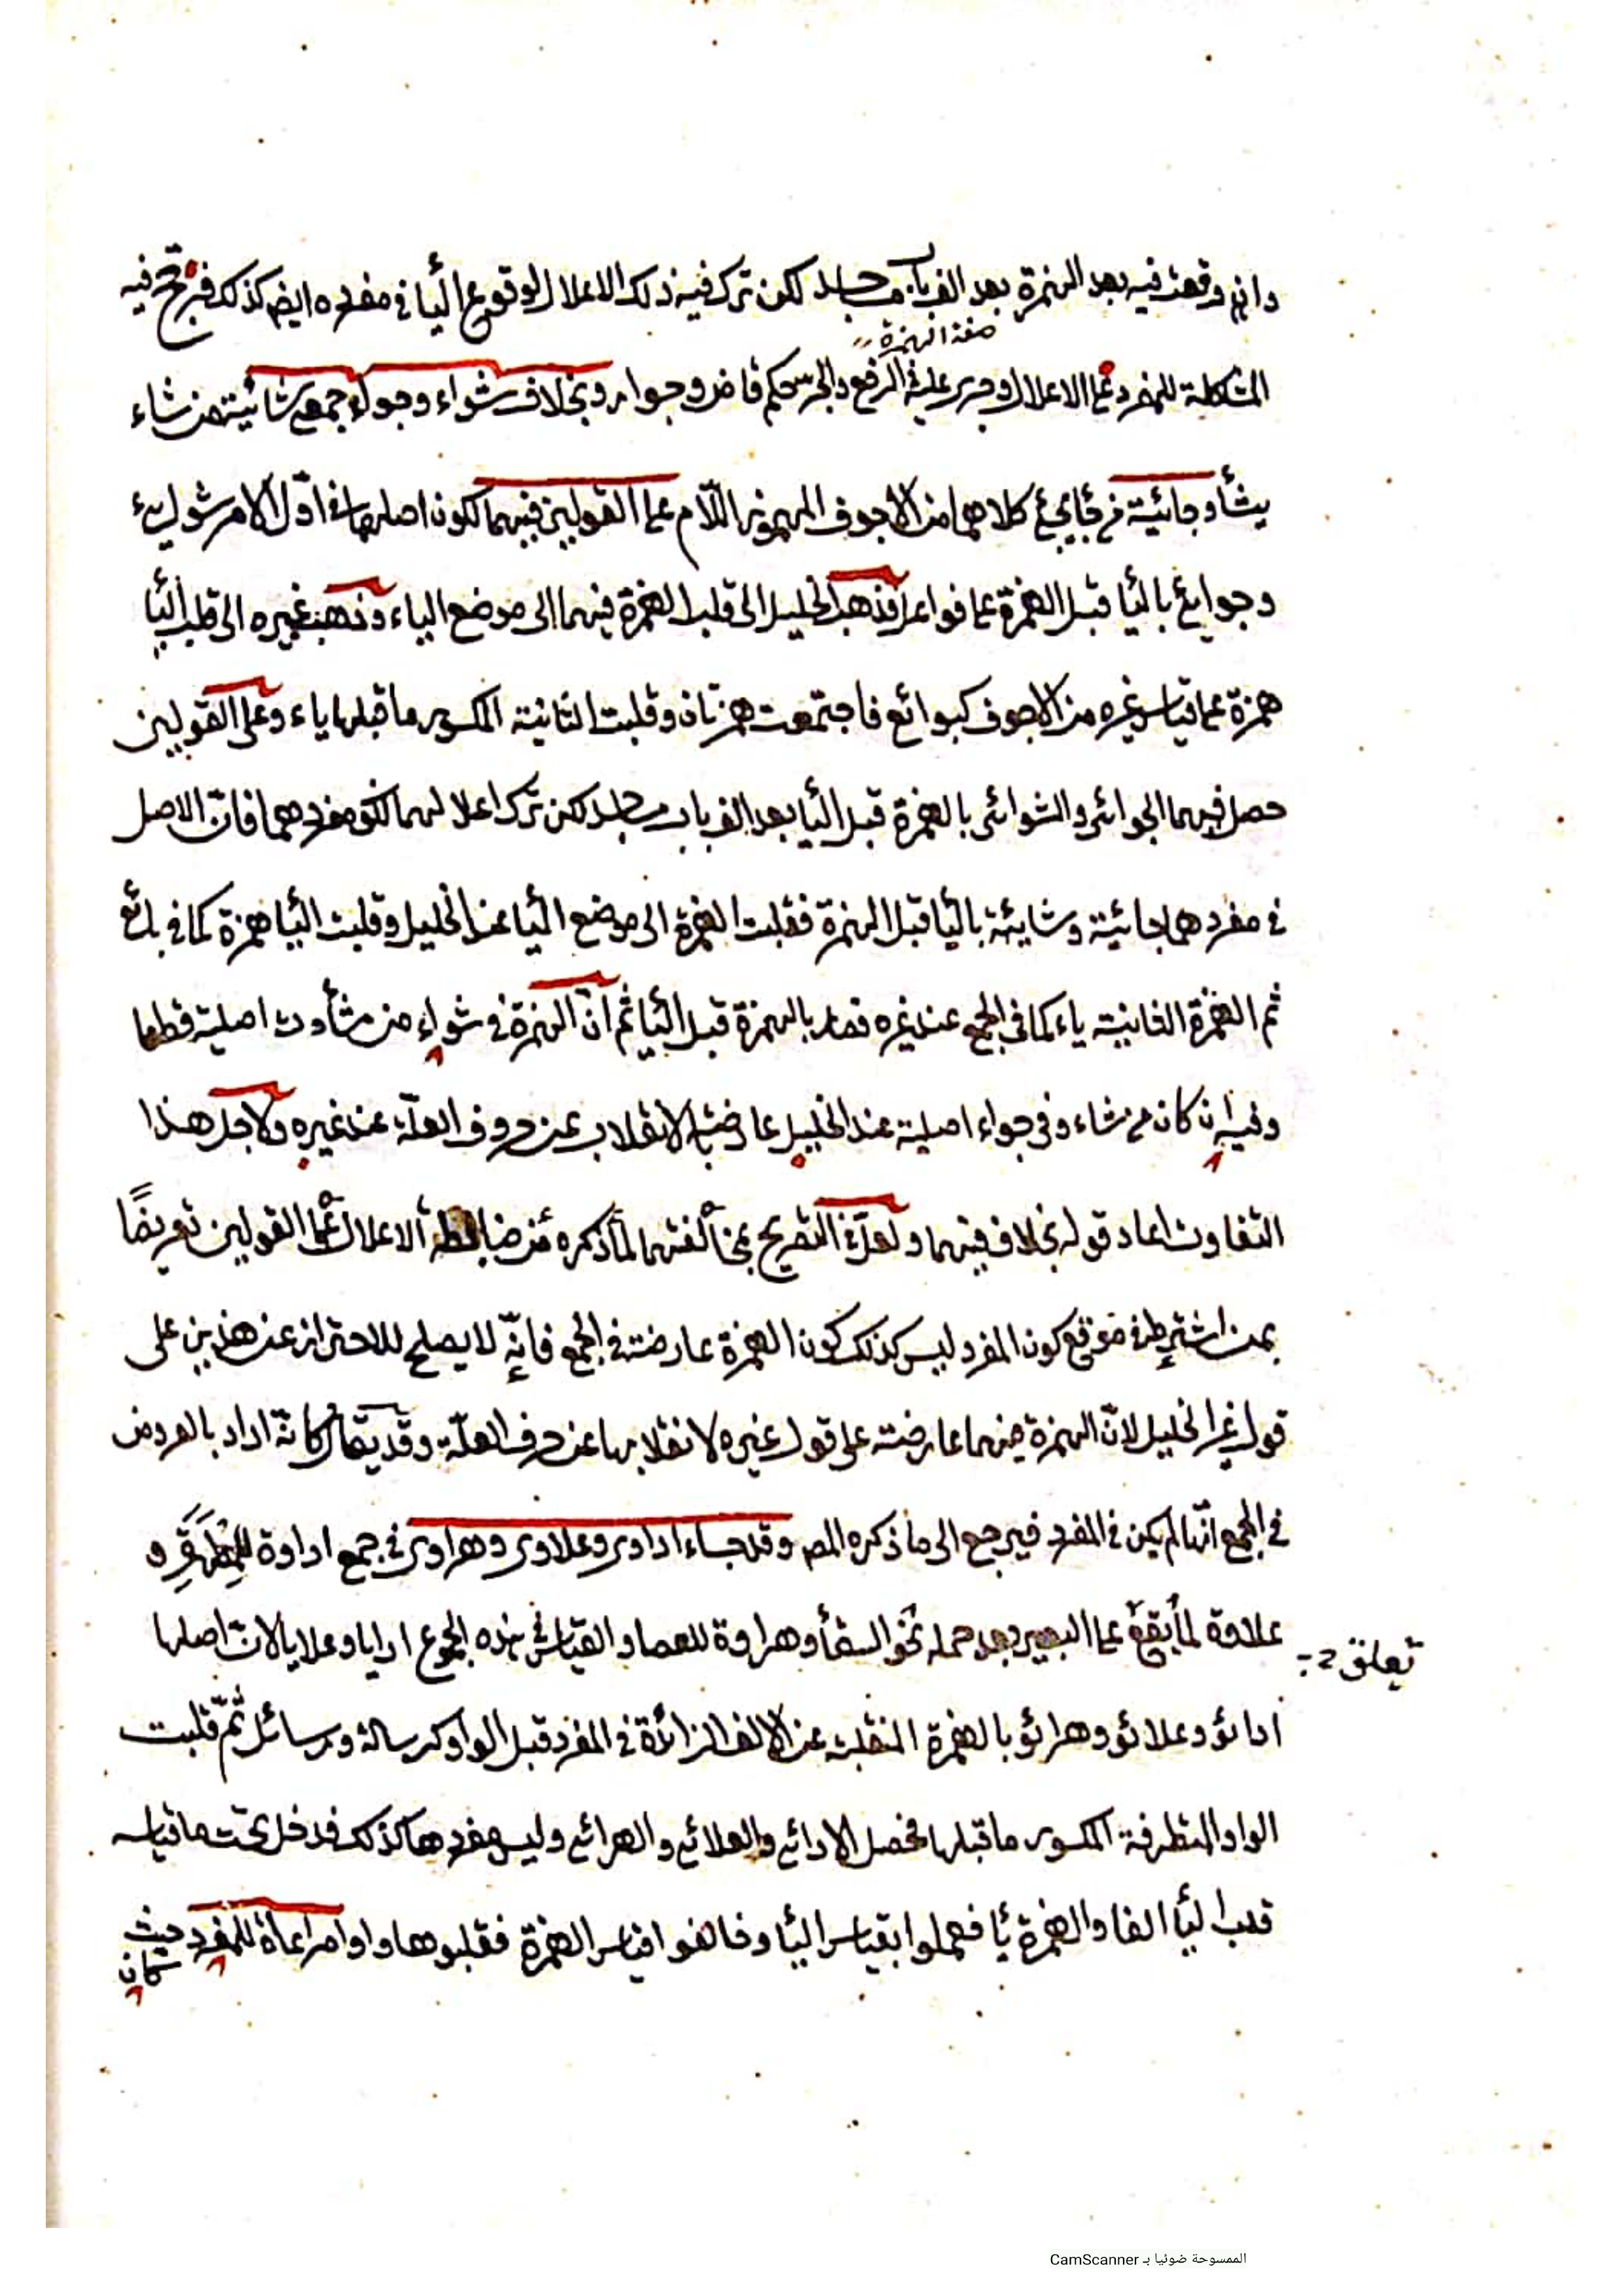 وانه وقعت فيه بعد الهمزة بعد الف باب مساجد لكن ترك فيه ذلك الاعلال لوقوع اليا في مفرده ايضا كذلك فرجح فيه
صفة الهمزة
المشاكلة للمفرد على الاعلال وجرى عليه في الرفع والجر حكم قاض وجوار وبخلاف شواء وجواء جمعى شائية من شاء
يشأ وجائية من جاء يجئ كلاهما من الاجوف المهموز اللّام على القولين فيهما لكون اصلهما في اوّل الامر شوايئ
وجوايئ باليا قبل الهمزة على فواعل فذهب الخليل الى قلب الهمزة فيهما الى موضع الياء وذهب غيره الى قلب اليا
همزة على قياس غيره من الاجوف كبوائع فاجتمعت همزتان وقلبت الثانية المكسور ما قبلها ياء وعلى القولين
حصل فيهما الجوائى والشوائى بالهمزة قبل اليا بعد الف باب مساجد لكن ترك اعلالهما لكون مفردهما فان الاصل
في مفردهما جائية وشايئة باليا قبل الهمزة فقلبت الهمزة الى موضع اليا عند الخليل وقلبت اليا همزة كما في بائع
ثم الهمزة الثانية ياء كما في الجمع عند غيره فصار بالهمزة قبل اليا ثم انّ الهمزة في شواء من شأوت اصلية قطعا
وفيه ان كان من شاء وفي جواء اصلية عند الخليل عارضة بالانقلاب عن حروف العلّة عند غيره ولاجل هذا
التفاوت اعاد قوله بخلاف فيهما ولعلّ في التصريح بمخالفتهما لما ذكره من ضابطه الاعلال على القولين تعريضًا
بمن اشترط في موقع كون المفرد ليس كذلك كون الهمزة عارضة في الجمع فانّه لا يصلح للاحتراز عن هذين على
قول غير الخليل لانّ الهمزة فيهما عارضة على قول غيره لانقلابها عن حرف العلّة وقد يقال كانّه اراد بالعروض
في الجمع انّها لم يكن في المفرد فيرجع الى ما ذكره المص وقد جاء اداوى وعلاوى وهراوى في جمع اداوة للمطهرة و
علاوة لما يقع على البعير بعد حمله نحو السقأ وهراوة للعصا والقياس في هذه الجموع ادايا وعلايا لان اصلها
ادائو وعلائو وهرائو بالهمزة المنقلبة عن الالف الزائدة في المفرد قبل الواو كرسالة ورسائل ثمّ قلبت
الواو المتطرفة المكسور ما قبلها فحصل الادائي والعلائي والهرائي وليس مفردها كذلك فدخل تحت ما قياسه
قلب اليا الفا والهمزة يأ فعملوا بقياس اليا وخالفوا قياس الهمزة فقلبوها واوا مراعاة للمفرد حيث
كان